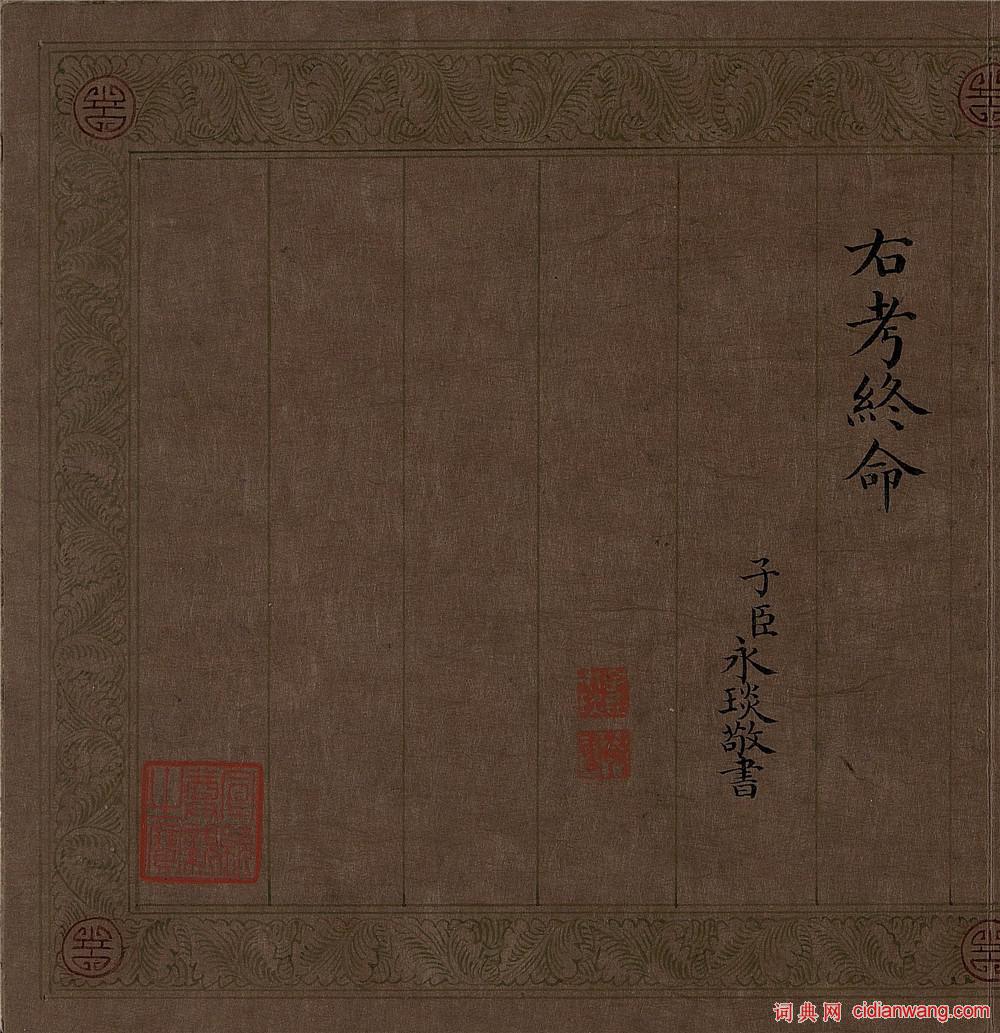 右考終命
子臣永琰敬書
词典网 cidianwang.com